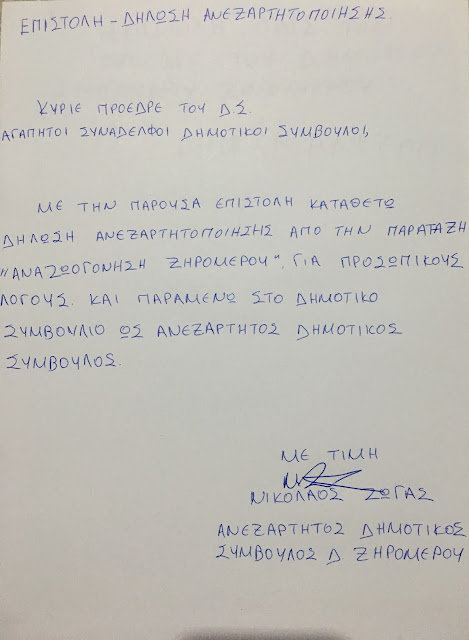 ΕΠΙΣΤΟΛΗ - ΔΗΛΩΣΗ ΑΝΕΞΑΡΤΗΤΟΠΟΙΗΣΗΣ.
ΚΥΡΙΕ ΠΡΟΕΔΡΕ ΤΟΥ Δ.Σ.
ΑΓΑΠΗΤΟΙ ΣΥΝΑΔΕΛΦΟΙ ΔΗΜΟΤΙΚΟΙ ΣΥΜΒΟΥΛΟΙ,
ΜΕ ΤΗΝ ΠΑΡΟΥΣΑ ΕΠΙΣΤΟΛΗ ΚΑΤΑΘΕΤΩ
ΔΗΛΩΣΗ ΑΝΕΞΑΡΤΗΤΟΠΟΙΗΣΗΣ ΑΠΟ ΤΗΝ ΠΑΡΑΤΑΞΗ
"ΑΝΑΖΩΟΓΟΝΗΣΗ ΞΗΡΟΜΕΡΟΥ". ΓΙΑ ΠΡΟΣΩΠΙΚΟΥΣ
ΛΟΓΟΥΣ. ΚΑΙ ΠΑΡΑΜΕΝΩ ΣΤΟ ΔΗΜΟΤΙΚΟ
ΣΥΜΒΟΥΛΙΟ ΩΣ ΑΝΕΞΑΡΤΗΤΟΣ ΔΗΜΟΤΙΚΟΣ
ΣΥΜΒΟΥΛΟΣ.
ΜΕ ΤΙΜΗ
ΝΙΚΟΛΑΟΣ ΖΩΓΑΣ
ΑΝΕΞΑΡΤΗΤΟΣ ΔΗΜΟΤΙΚΟΣ
ΣΥΜΒΟΥΛΟΣ Δ ΞΗΡΟΜΕΡΟΥ